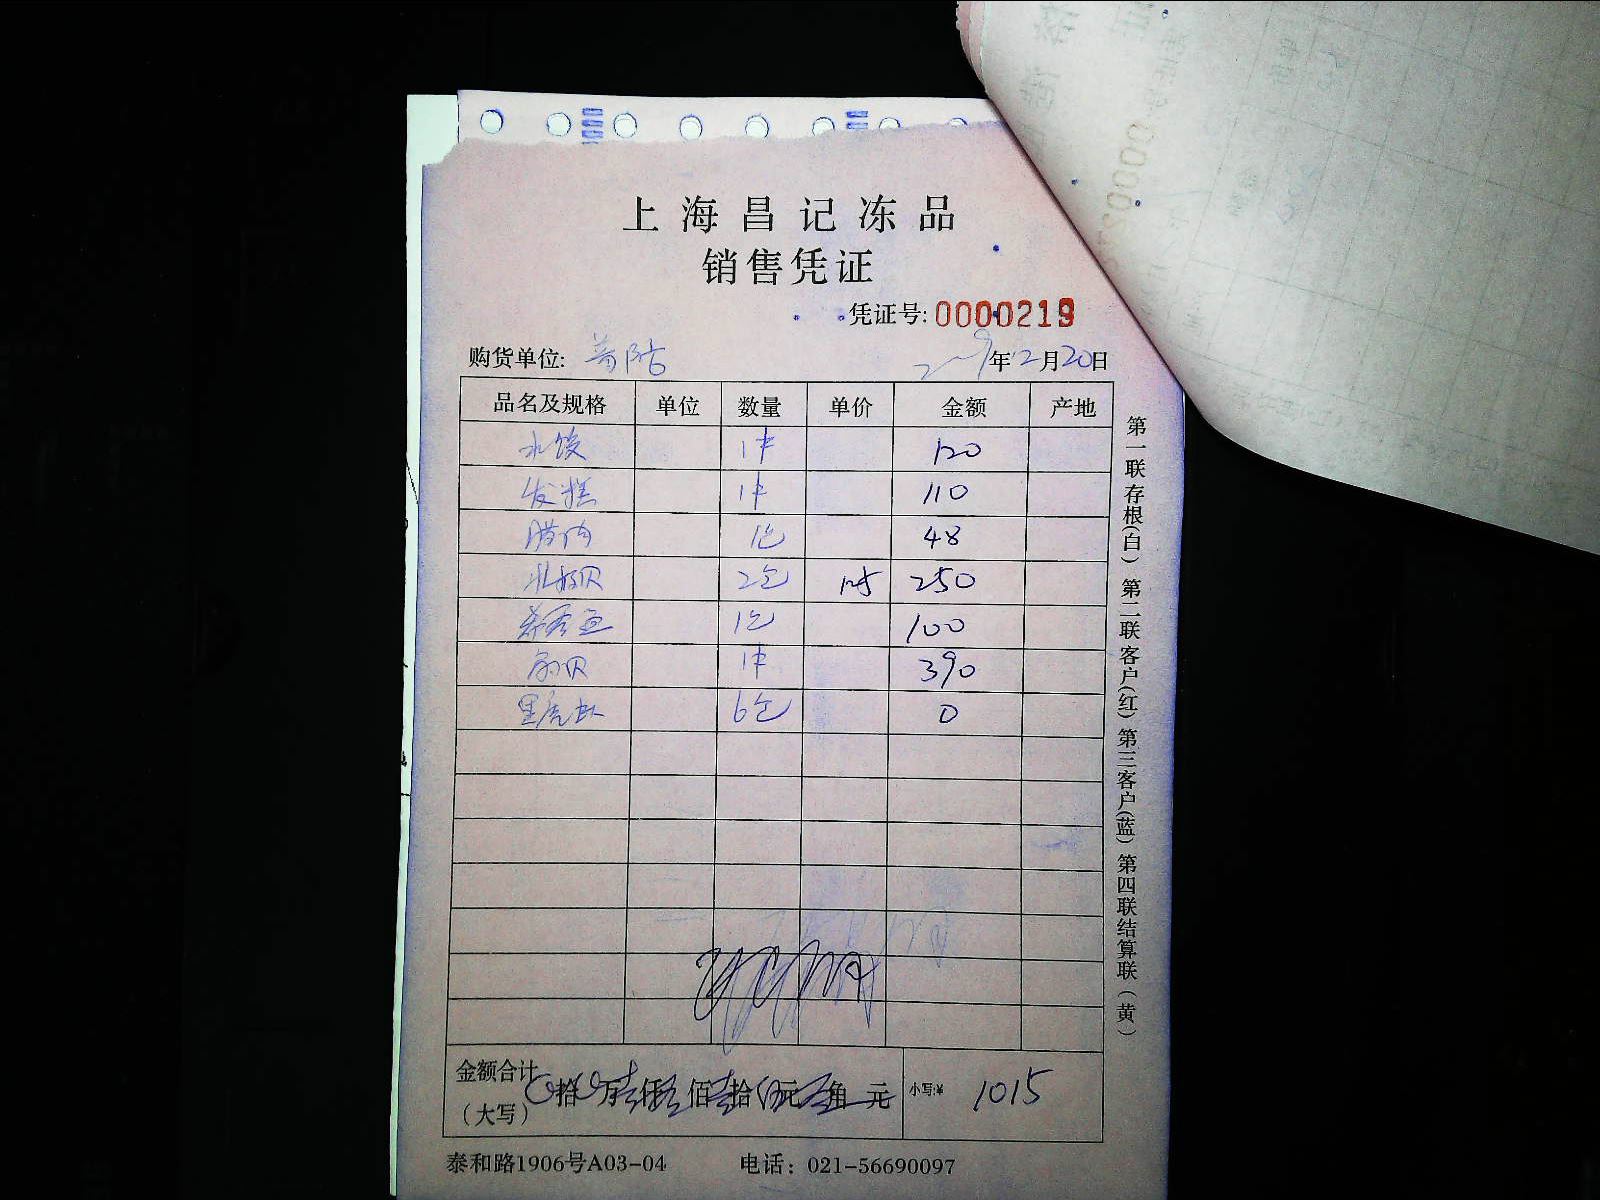 上海昌记冻品
销售凭证
凭证号: 0000219
购货单位: 年12月20日
品名及规格 单位 数量 单价 金额 产地
水饺 1件 120
发糕 1件 110
腊肉 1包 48
北极贝 2包 125 250
希鲮鱼 1包 100
扇贝 1件 390
黑虎虾 6包 0
金额合计
(大写) 拾 万 仟 佰 拾 元 角 元 小写:¥ 1015
泰和路1906号A03-04 电话: 021-56690097
第一联存根(白) 第二联客户(红) 第三客户(蓝) 第四联结算联(黄)